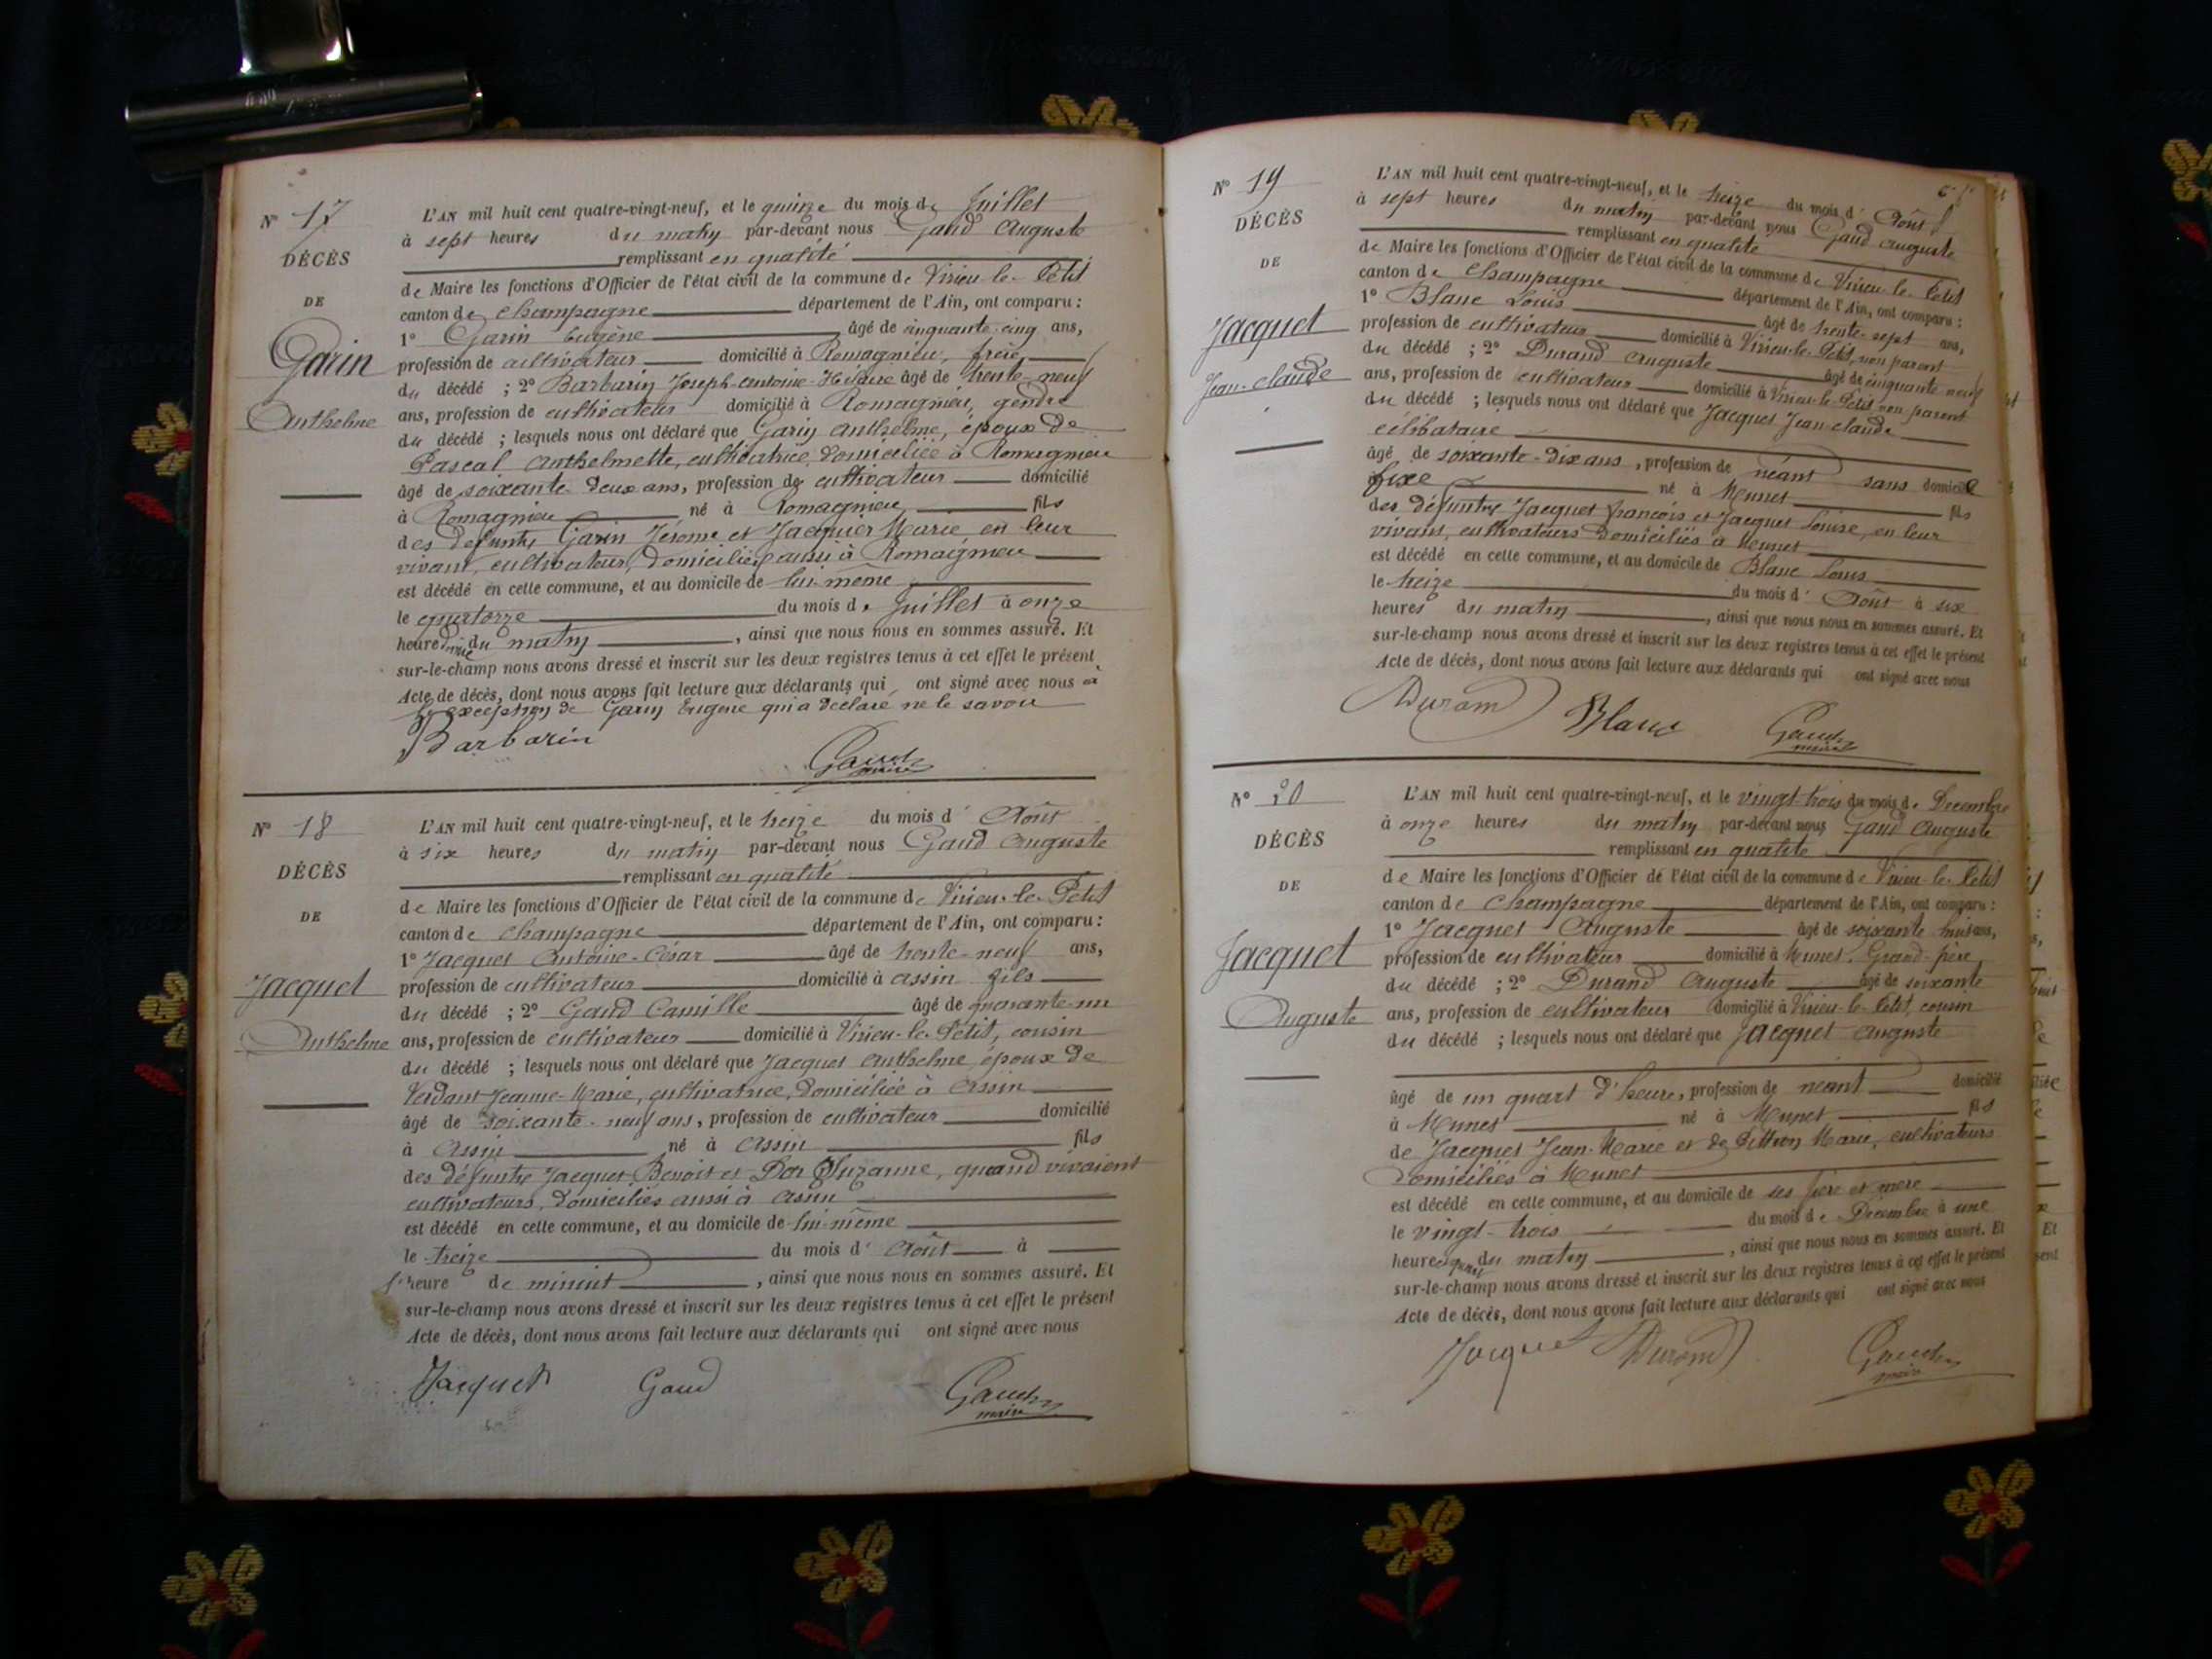 N° 17
DÉCÈS
DE
Garin
Anthelme
L'AN mil huit cent quatre-vingt-neuf, et le quinze du mois de Juillet
à sept heures du matin par-devant nous Gaud Auguste
remplissant en qualité
de Maire les fonctions d'Officier de l'état civil de la commune de Virieu-le-Petit
canton de Champagne département de l'Ain, ont comparu :
1° Garin Eugène âgé de cinquante-cinq ans,
profession de cultivateur domicilié à Romagnieu, frère
du décédé ; 2° Barbarin Joseph-Antoine-Hilaire âgé de trente-neuf
ans, profession de cultivateur domicilié à Romagnieu, gendre
du décédé ; lesquels nous ont déclaré que Garin Anthelme, époux de
Pascal Anthelmette, cultivatrice, domiciliée à Romagnieu
âgé de soixante-deux ans, profession de cultivateur domicilié
à Romagnieu né à Romagnieu fils
des défunts Garin Jérome et Jacquier Marie en leur
vivant, cultivateurs, domiciliés aussi à Romagnieu
est décédé en cette commune, et au domicile de lui-même
le quatorze du mois de Juillet à onze
heures du matin, ainsi que nous nous en sommes assuré. Et
sur-le-champ nous avons dressé et inscrit sur les deux registres tenus à cet effet le présent
Acte de décès, dont nous avons fait lecture aux déclarants qui ont signé avec nous à
l'exception de Garin Eugène qui a déclaré ne le savoir
Barbarin
Gaud
maire
N° 18
DÉCÈS
DE
Jacquet
Anthelme
L'AN mil huit cent quatre-vingt-neuf, et le treize du mois d'Août
à six heures du matin par-devant nous Gaud Auguste
remplissant en qualité
de Maire les fonctions d'Officier de l'état civil de la commune de Virieu-le-Petit
canton de Champagne département de l'Ain, ont comparu :
1° Jacquet Antoine-César âgé de trente-neuf ans,
profession de cultivateur domicilié à Assin fils
du décédé ; 2° Gaud Camille âgé de quarante-un
ans, profession de cultivateur domicilié à Virieu-le-Petit, cousin
du décédé ; lesquels nous ont déclaré que Jacquet Anthelme, époux de
Verdant Jeanne-Marie, cultivatrice, domiciliée à Assin
âgé de soixante-neuf ans, profession de cultivateur domicilié
à Assin né à Assin fils
des défunts Jacquet Benoit et Dor Suzanne, quand vivaient
cultivateurs, domiciliés aussi à Assin
est décédé en cette commune, et au domicile de lui-même
le treize du mois d'Août à
l'heure de minuit, ainsi que nous nous en sommes assuré. Et
sur-le-champ nous avons dressé et inscrit sur les deux registres tenus à cet effet le présent
Acte de décès, dont nous avons fait lecture aux déclarants qui ont signé avec nous
Jacquet Gaud Gaud
maire
N° 19
DÉCÈS
DE
Jacquet
Jean-Claude
L'AN mil huit cent quatre-vingt-neuf, et le treize du mois d'Août
à sept heures du matin par-devant nous Gaud Auguste
remplissant en qualité
de Maire les fonctions d'Officier de l'état civil de la commune de Virieu-le-Petit
canton de Champagne département de l'Ain, ont comparu :
1° Blanc Louis âgé de trente-sept ans,
profession de cultivateur domicilié à Virieu-le-Petit, non parent
du décédé ; 2° Durand Auguste âgé de cinquante-neuf
ans, profession de cultivateur domicilié à Virieu-le-Petit non parent
du décédé ; lesquels nous ont déclaré que Jacquet Jean-Claude
célibataire
âgé de soixante-dix ans, profession de néant sans domicile
fixe né à Munet fils
des défunts Jacquet François et Jacquet Louise, en leur
vivant, cultivateurs domiciliés à Munet
est décédé en cette commune, et au domicile de Blanc Louis
le treize du mois d'Août à six
heures du matin, ainsi que nous nous en sommes assuré. Et
sur-le-champ nous avons dressé et inscrit sur les deux registres tenus à cet effet le présent
Acte de décès, dont nous avons fait lecture aux déclarants qui ont signé avec nous
Durand Blanc Gaud
maire
N° 20
DÉCÈS
DE
Jacquet
Auguste
L'AN mil huit cent quatre-vingt-neuf, et le vingt-trois du mois de Décembre
à onze heures du matin par-devant nous Gaud Auguste
remplissant en qualité
de Maire les fonctions d'Officier de l'état civil de la commune de Virieu-le-Petit
canton de Champagne département de l'Ain, ont comparu :
1° Jacquet Auguste âgé de soixante-huit ans,
profession de cultivateur domicilié à Munet, Grand-père
du décédé ; 2° Durand Auguste âgé de soixante
ans, profession de cultivateur domicilié à Virieu-le-Petit, cousin
du décédé ; lesquels nous ont déclaré que Jacquet Auguste
âgé de un quart d'heure, profession de néant domicilié
à Munet né à Munet fils
de Jacquet Jean-Marie et de Marie, cultivateurs
domiciliés à Munet
est décédé en cette commune, et au domicile de ses père et mère
le vingt-trois du mois de Décembre à une
heure du matin, ainsi que nous nous en sommes assuré. Et
sur-le-champ nous avons dressé et inscrit sur les deux registres tenus à cet effet le présent
Acte de décès, dont nous avons fait lecture aux déclarants qui ont signé avec nous
Jacquet Durand Gaud
maire